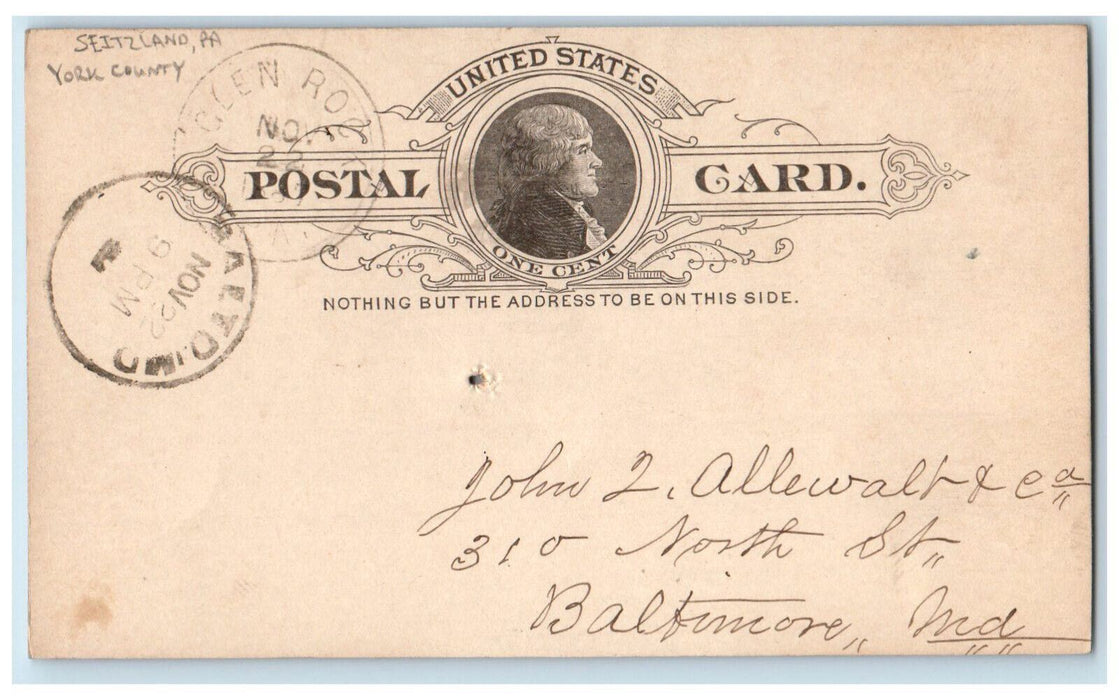 SEITZLAND, PA
YORK COUNTY
GLEN ROCK
NOV
22
UNITED STATES
POSTAL CARD.
ONE CENT
NOTHING BUT THE ADDRESS TO BE ON THIS SIDE.
NOV 22
9 PM
REC'D.
John Allewalt &
310 North St,,
Baltimore,, Md